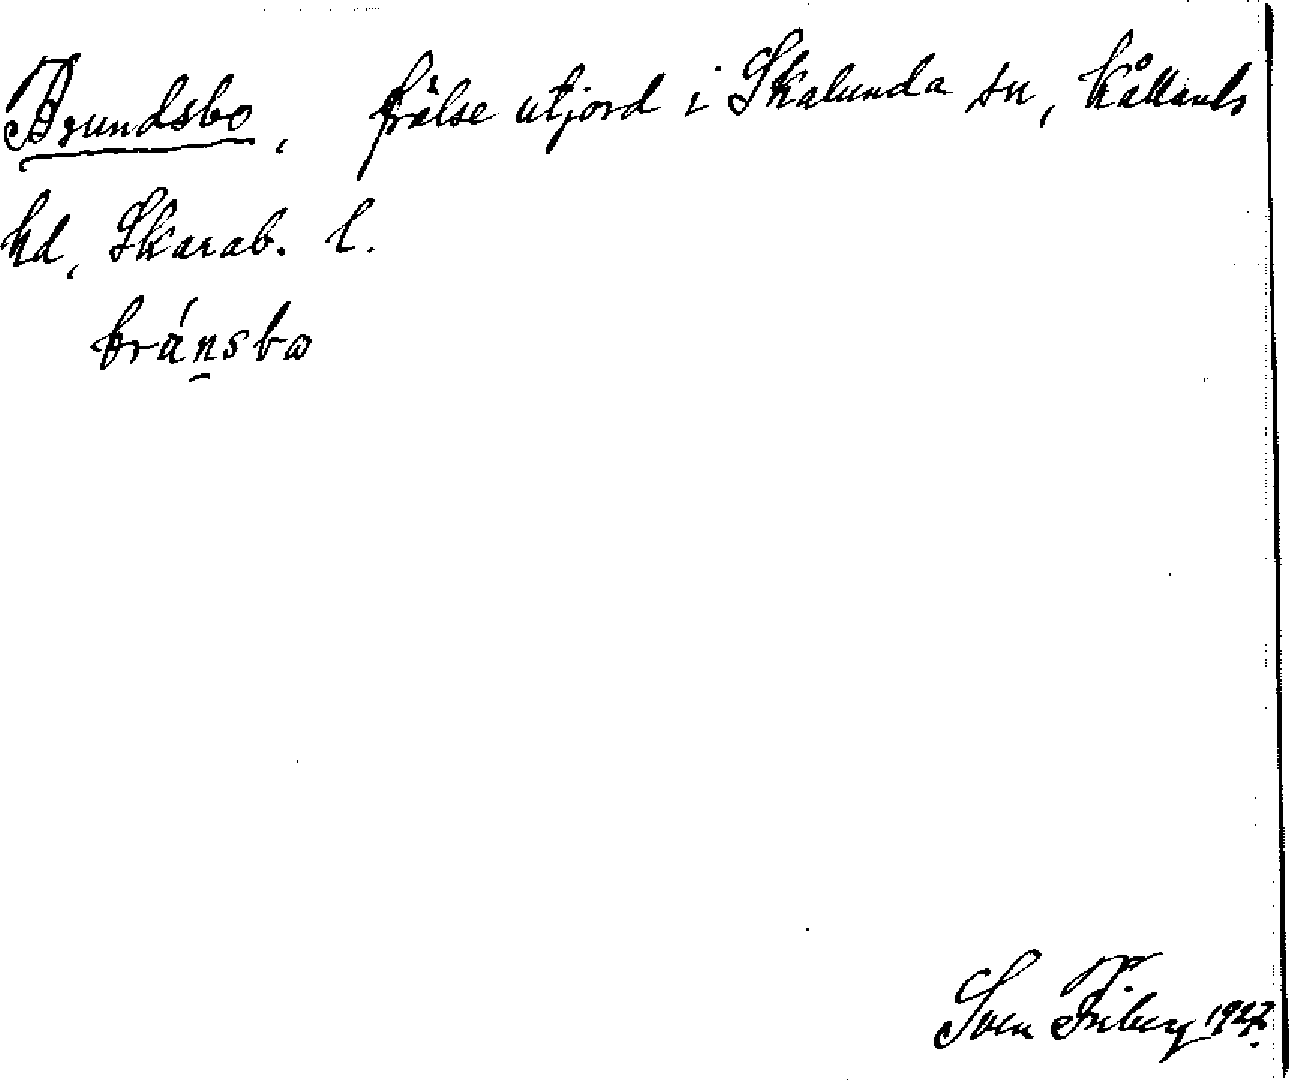 Brundsbo, frälse utjord i Skalunda sn, Kållands
hd, Skarab. l.
bránsbω
Sven Friberg 1927.